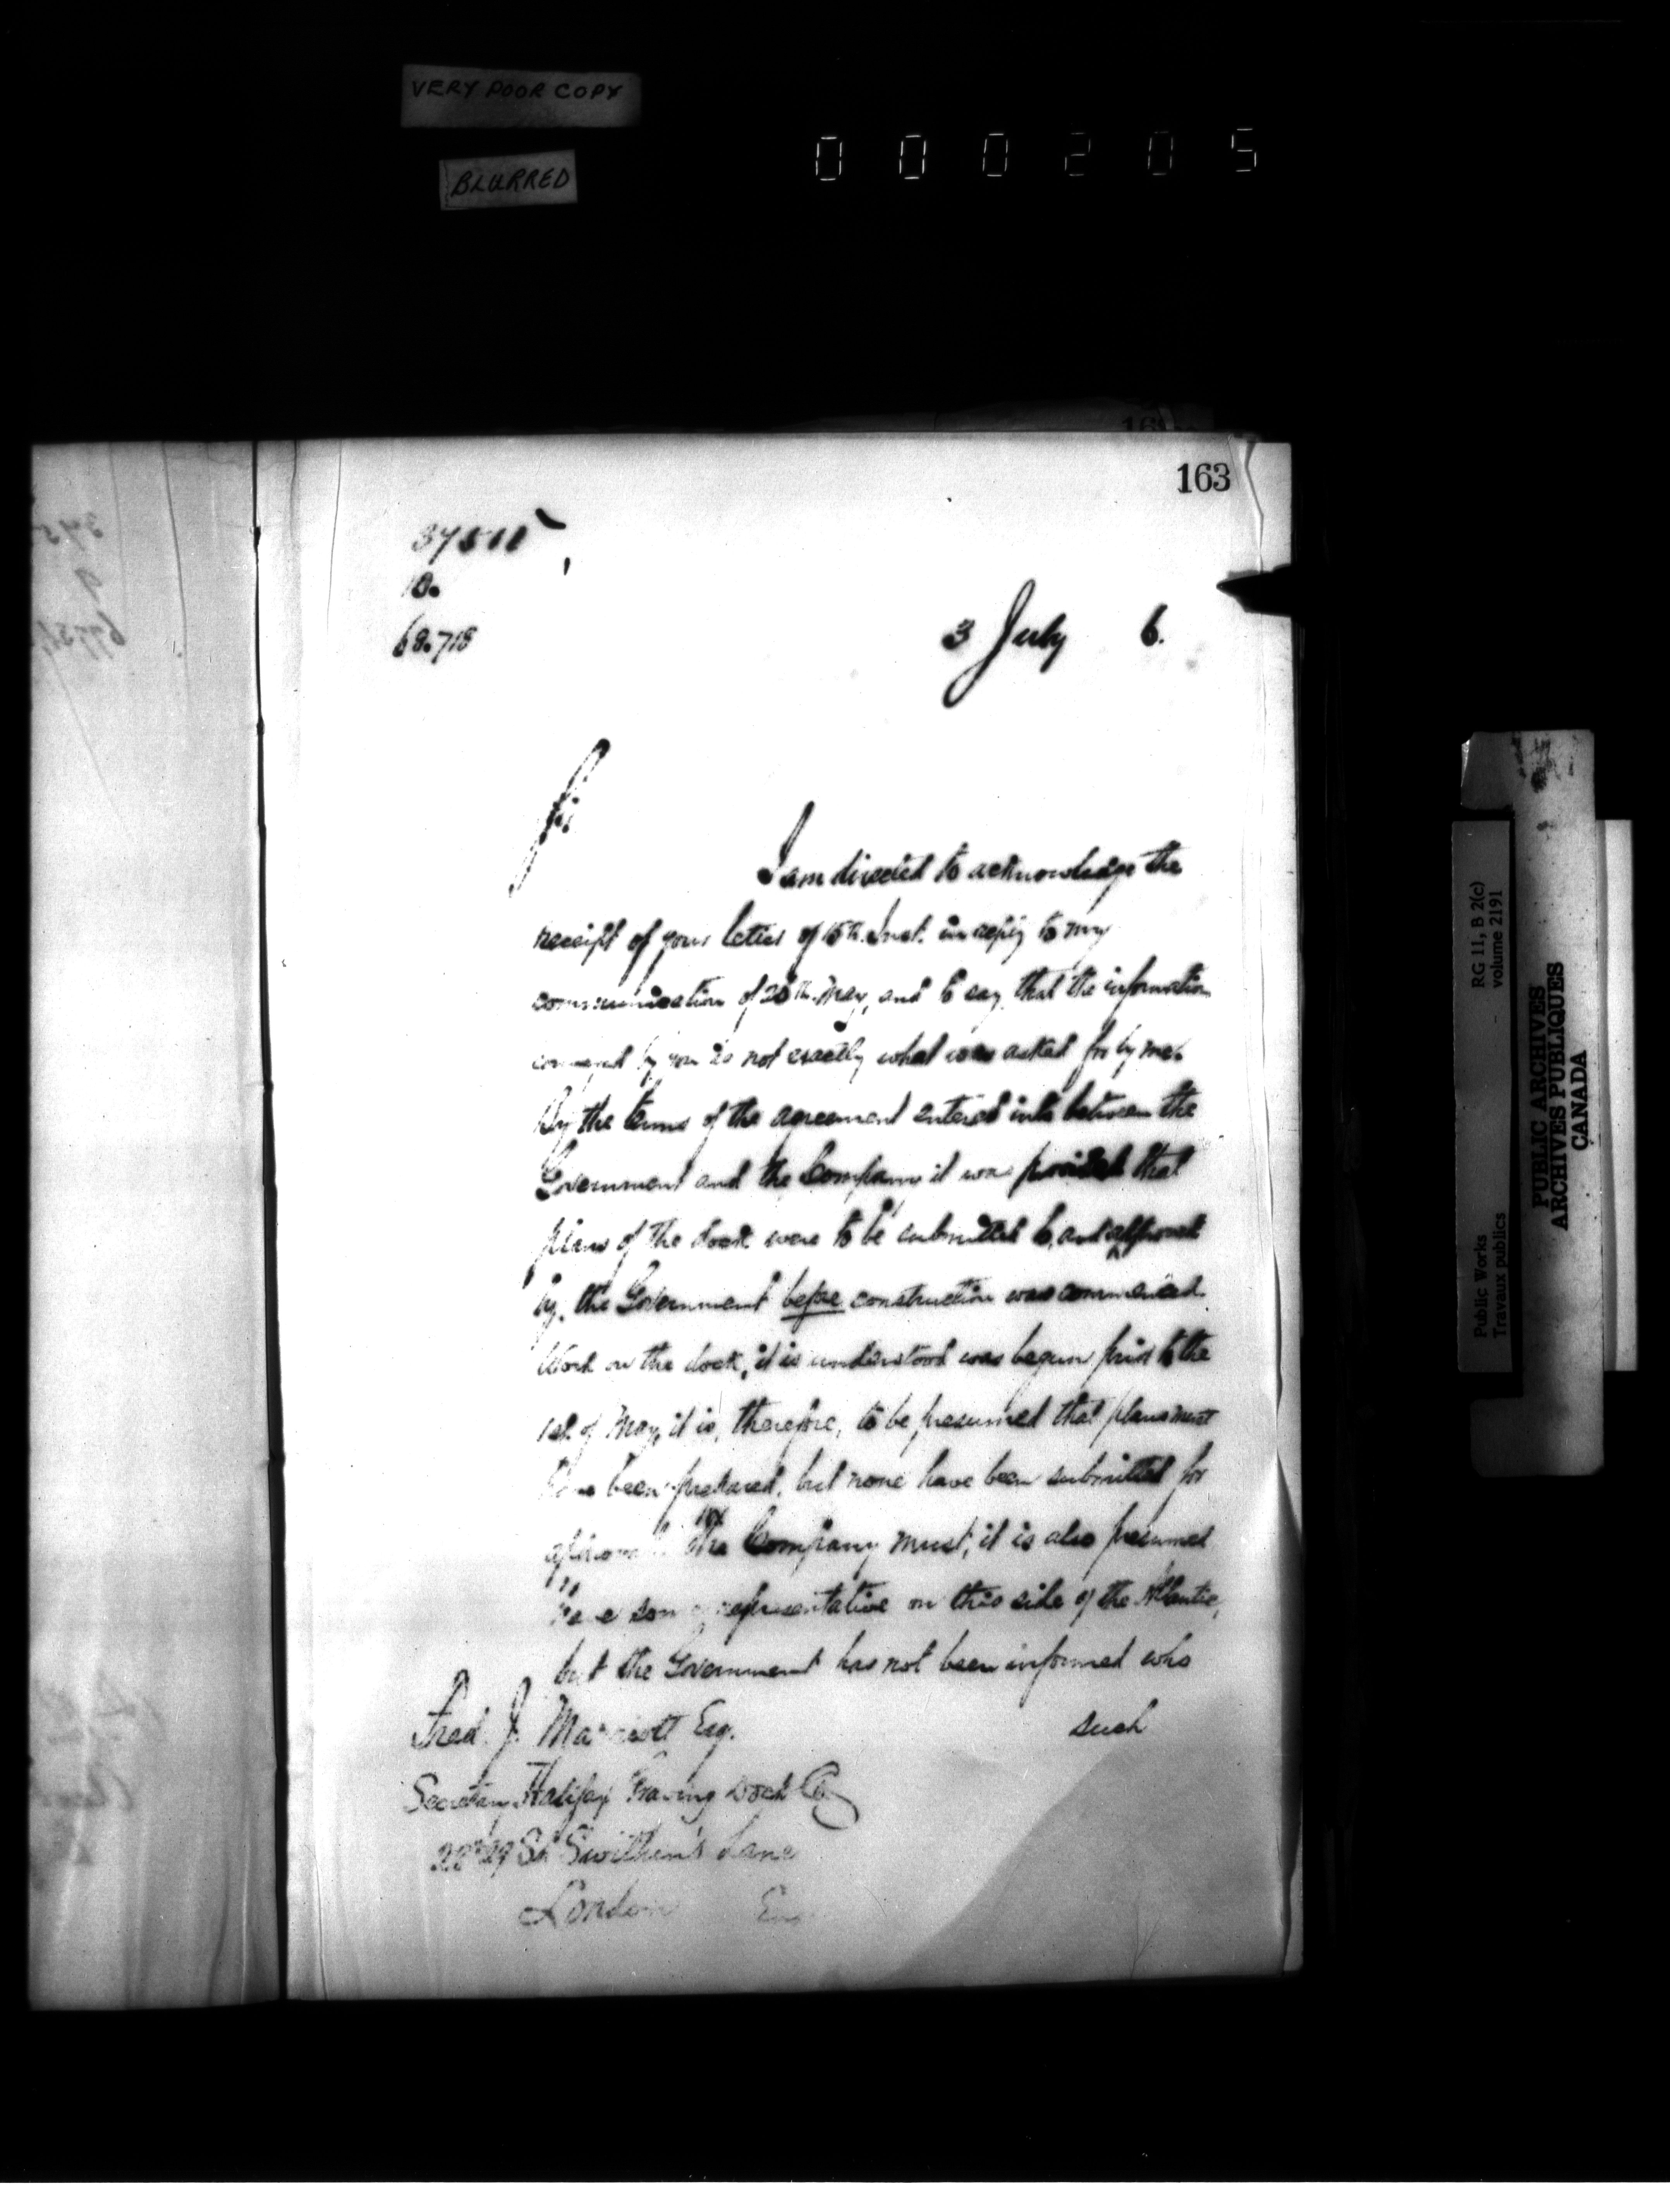 VERY POOR COPY
BLURRED
000205
163
37511
10.
68.718
3 July 6.
Sir
I am directed to acknowledge the
receipt of your letter of 15th. Inst. in reply to my
communication of 20th. May, and to say that the information
conveyed by you is not exactly what was asked for by me.
By the terms of the agreement entered into between the
Government and the Company it was provided that
plans of the dock were to be submitted to, and approved
by, the Government before construction was commenced.
Work on the dock, it is understood was begun prior to the
1st. of May, it is, therefore, to be presumed that plans must
have been prepared, but none have been submitted for
approval. The Company must, it is also presumed
have some representative on this side of the Atlantic,
but the Government has not been informed who
such
Fred. J. Marriott Esq.
Secretary Halifax Graving Dock Co
St Swithin's Lane
London Eng
Public Works
Travaux publics
RG 11, B 2(c)
volume 2191
PUBLIC ARCHIVES
ARCHIVES PUBLIQUES
CANADA